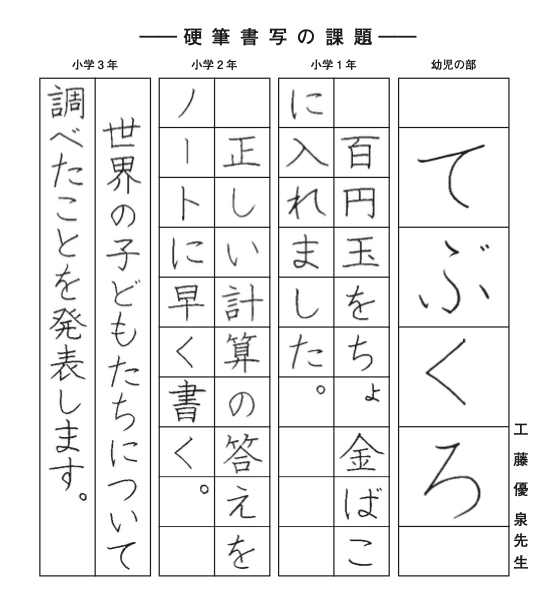 硬筆書写の課題
幼児の部
てぶくろ
小学1年
百円玉をちょ金ばこ
に入れました。
小学2年
正しい計算の答えを
ノートに早く書く。
小学3年
世界の子どもたちについて
調べたことを発表します。
工藤優泉先生